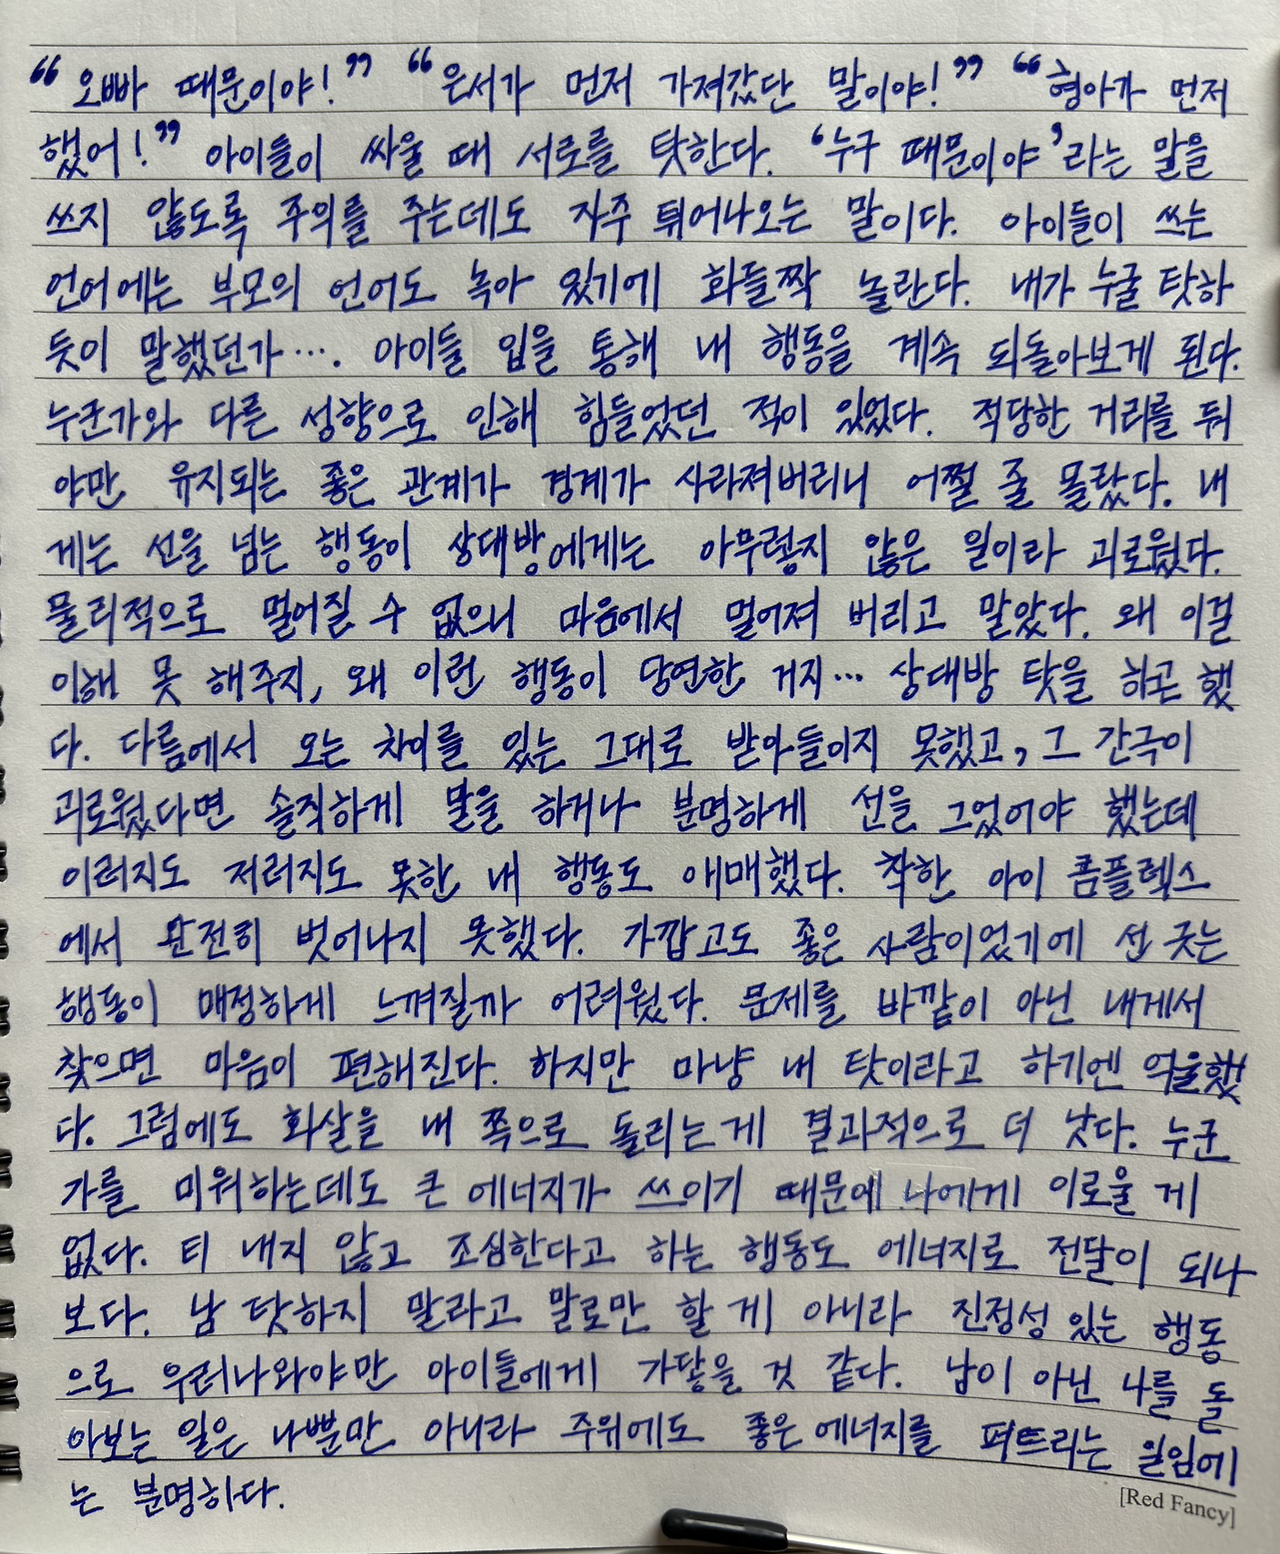 “오빠 때문이야!” “은서가 먼저 가져갔단 말이야!” “형아가 먼저
했어!” 아이들이 싸울 때 서로를 탓한다. ‘누구 때문이야’라는 말을
쓰지 않도록 주의를 주는데도 자주 튀어나오는 말이다. 아이들이 쓰는
언어에는 부모의 언어도 녹아 있기에 화들짝 놀란다. 내가 누굴 탓하
듯이 말했던가…. 아이들 입을 통해 내 행동을 계속 되돌아보게 된다.
누군가와 다른 성향으로 인해 힘들었던 적이 있었다. 적당한 거리를 둬
야만 유지되는 좋은 관계가 경계가 사라져버리니 어쩔 줄 몰랐다. 내
게는 선을 넘는 행동이 상대방에게는 아무렇지 않은 일이라 괴로웠다.
물리적으로 멀어질 수 없으니 마음에서 멀어져 버리고 말았다. 왜 이걸
이해 못 해주지, 왜 이런 행동이 당연한 거지… 상대방 탓을 하곤 했
다. 다름에서 오는 차이를 있는 그대로 받아들이지 못했고, 그 간극이
괴로웠다면 솔직하게 말을 하거나 분명하게 선을 그었어야 했는데
이러지도 저러지도 못한 내 행동도 애매했다. 착한 아이 콤플렉스
에서 완전히 벗어나지 못했다. 가깝고도 좋은 사람이었기에 선 긋는
행동이 매정하게 느껴질까 어려웠다. 문제를 바깥이 아닌 내게서
찾으면 마음이 편해진다. 하지만 마냥 내 탓이라고 하기엔 억울했
다. 그럼에도 화살을 내 쪽으로 돌리는게 결과적으로 더 낫다. 누군
가를 미워하는데도 큰 에너지가 쓰이기 때문에 나에게 이로울 게
없다. 티 내지 않고 조심한다고 하는 행동도 에너지로 전달이 되나
보다. 남 탓하지 말라고 말로만 할 게 아니라 진정성 있는 행동
으로 우러나와야만 아이들에게 가닿을 것 같다. 남이 아닌 나를 돌
아보는 일은 나뿐만 아니라 주위에도 좋은 에너지를 퍼트리는 일임에
는 분명하다.
[Red Fancy]